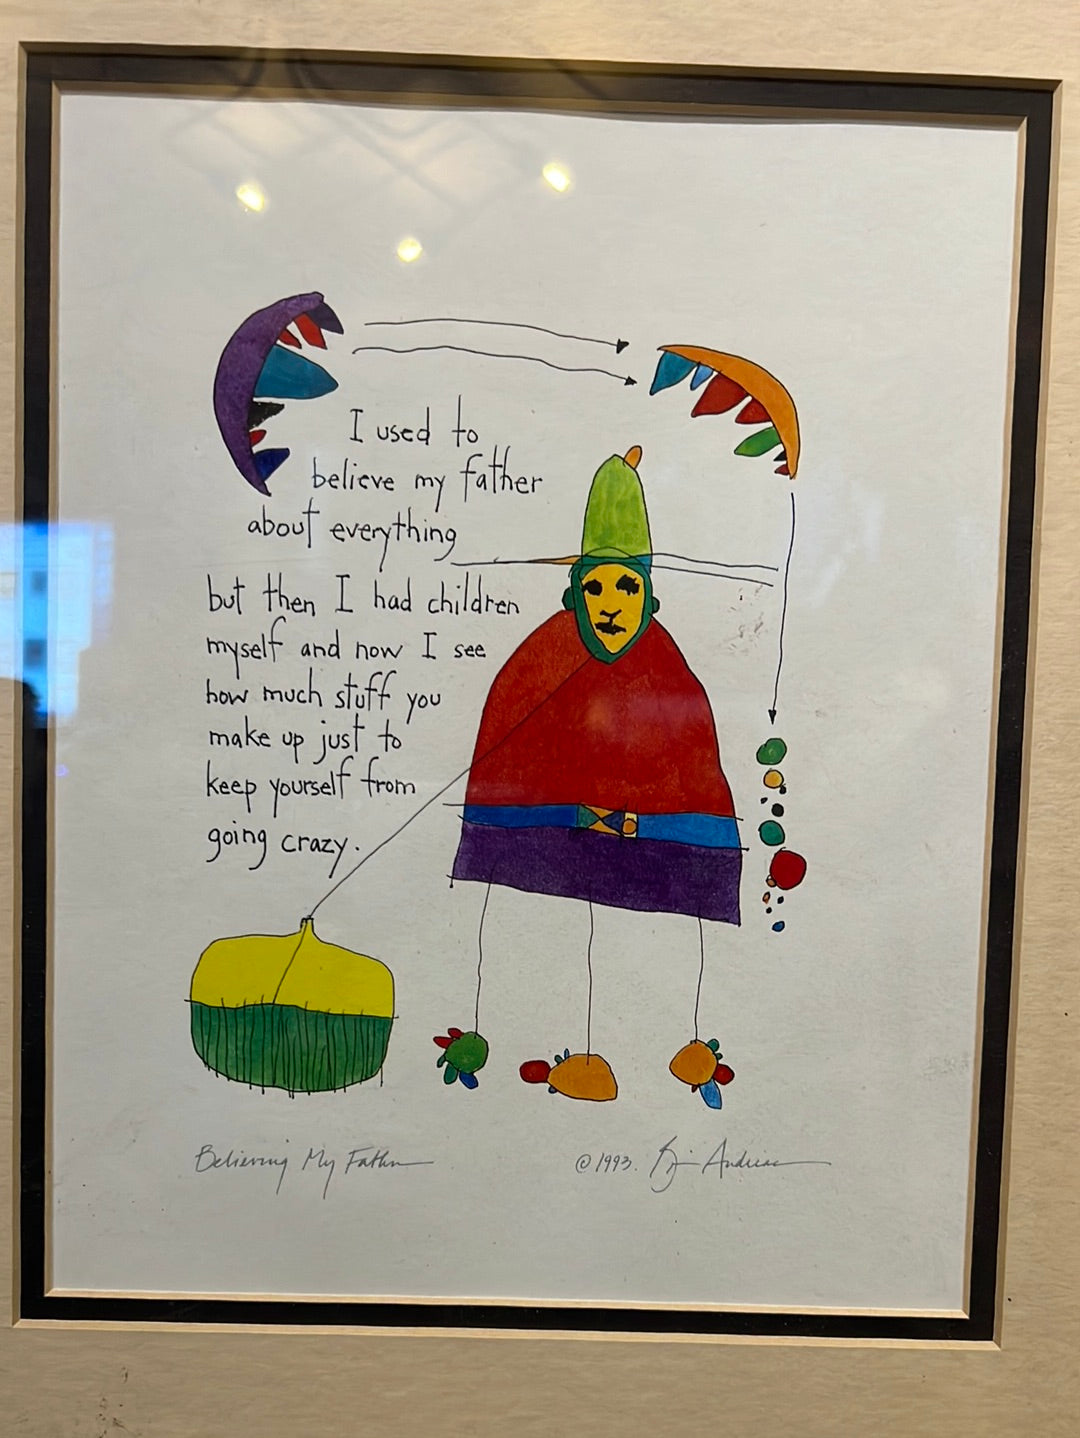 I used to
believe my father
about everything
but then I had children
myself and now I see
how much stuff you
make up just to
keep yourself from
going crazy.
Believing My Father
©1993. Brian Andreas